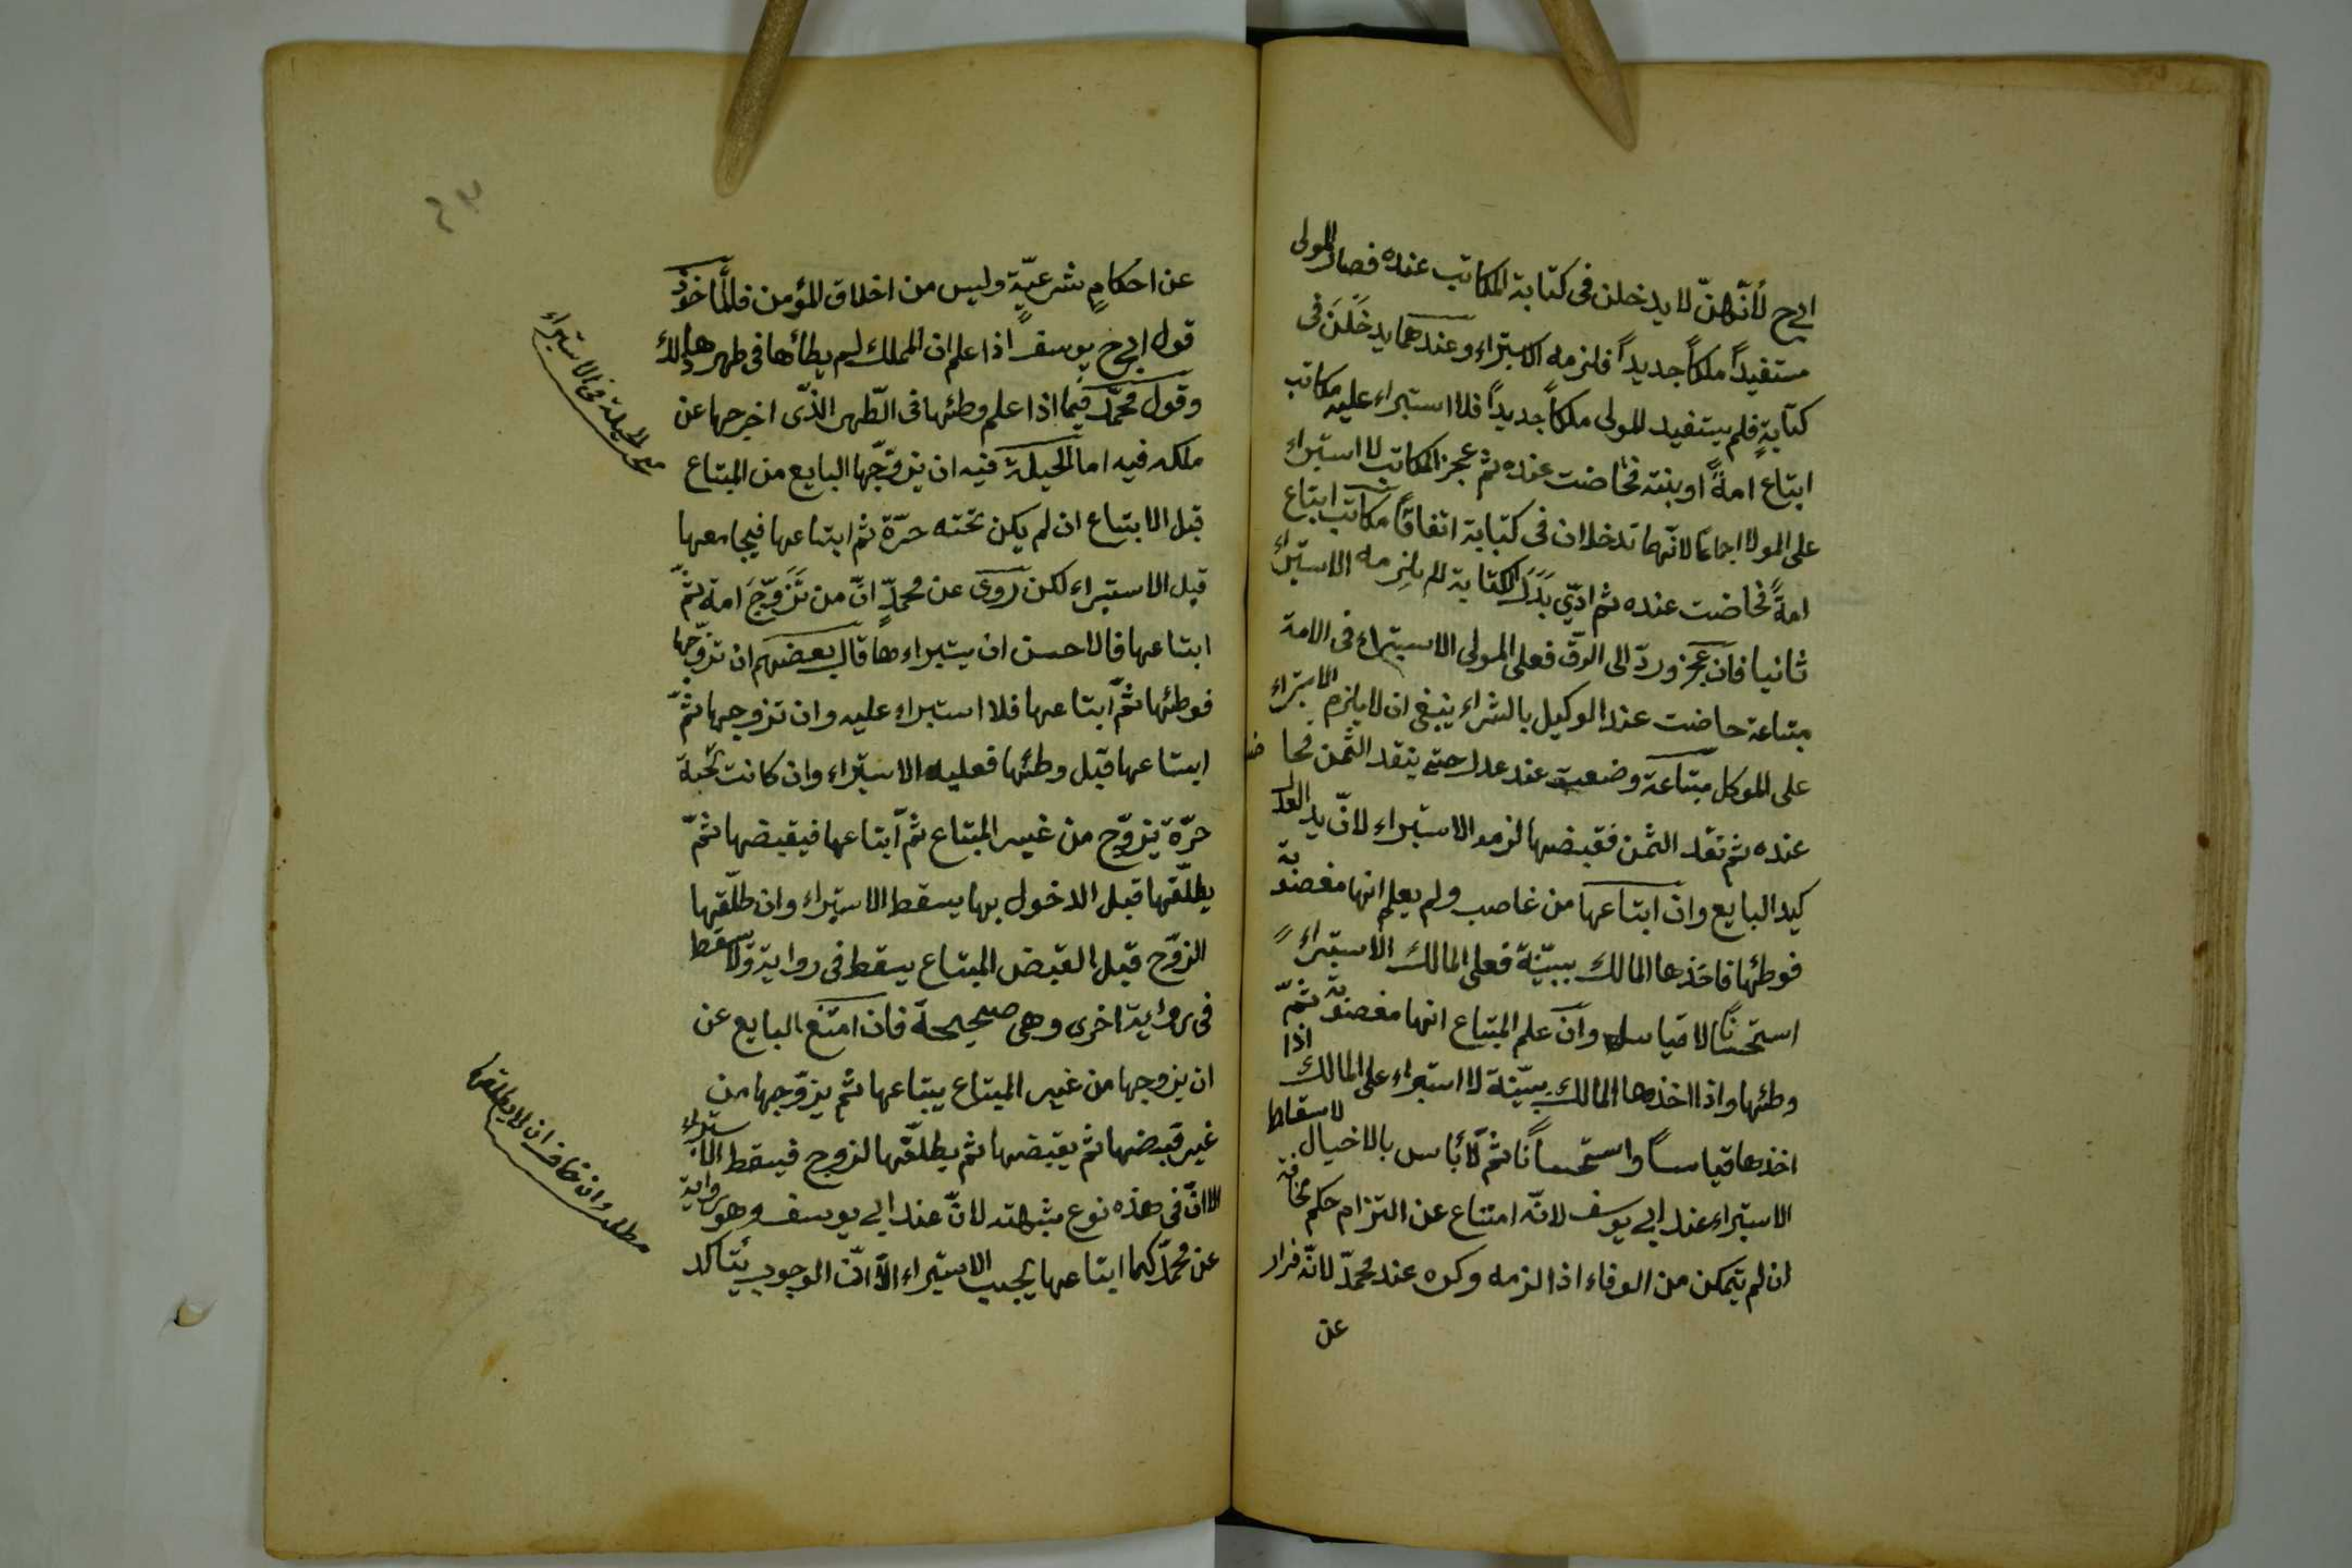 ابي ح لأنّهنّ لا يدخلن فى كتابة المكاتب عنده فصار المولى
مستفيداً ملكاً جديداً فلزمه الاستبراء وعندهما يدخلن فى
كتابةٍ فلم يستفيد للمولى ملكاً جديداً فلا استبراء عليه مكاتب
ابتاع امةً او بنته فحاضت عنده ثم عجز المكاتب لا استبراء
على المولا اجماعا لانّهما تدخلان فى كتابة اتفاقاً مكاتب ابتاع
امةً فحاضت عنده ثم ادّي بدل الكتابة لم يلزمه الاستبراء
ثانيا فان عجز وردّ الى الرق فعلى المولى الاستبراء فى الامة
مبتاعة حاضت عند الوكيل بالشراء ينبغى ان لا يلزم الاستبراء
على الموكل مبتاعة وضعت عند عدل حتى ينقد الثمن فحاضت
عنده ثم نقد الثمن فقبضها لزمو الاستبراء لانّ يد العدل
كيد البايع وان ابتاعها من غاصب ولم يعلم انها مغصوبة
فوطئها فاخذها المالك ببيّنة فعلى المالك الاستبراء
استحسانا لا قياسا وان علم المبتاع انها مغصوبة ثمّ
وطئها واذا اخذها المالك ببيّنة لا استبراء على المالك اذا
اخذها قياساً واستحساناً ثمّ لا بأس بالاحتيال لاسقاط
الاستبراء عند ابي يوسف لانّه امتناع عن التزام حكم مخافة
ان لم يتمكن من الوفاء اذا لزمه وكره عند محمدّ لانّه فرار
عن
عن احكامٍ شرعيّةٍ وليس من اخلاق المؤمن فالمأخوذ
قول ابي ح يوسف اذا علم ان المملك لم يطأها فى طهرها ذلك
وقول محمّد فيما اذا علم وطئها فى الطّهر الذّى اخرجها عن
ملكه فيه اما الحيلة فيه ان يزوّجها البايع من المبتاع
قبل الابتاع ان لم يكن تحته حرّة ثم ابتاعها فيجامعها
قبل الاستبراء لكن روى عن محمدّ انّ من تزوّج امة ثمّ
ابتاعها فالاحسن ان يستبراءها قال بعضهم ان تزوّجها
فوطئها ثمّ ابتاعها فلا استبراء عليه وان تزوجها ثمّ
ابتاعها قبل وطئها فعليه الاستبراء وان كانت تحته
حرّة يزوّج من غير المبتاع ثمّ ابتاعها فيقبضها ثمّ
يطلّقها قبل الدخول بها يسقط الاستبراء وان طلّقها
الزوّج قبل القبض المبتاع يسقط فى رواية ولا يسقط
فى رواية اخرى وهى صحيحة فان امتنع البايع عن
ان يزوجها من غير المبتاع يبتاعها ثم يزوّجها من
غير قبضها ثم يقبضها ثم يطلّقها الزوج فيسقط الاستبراء
الا انّ فى هذه نوع شبهته لانّ عند ابي يوسف وهو رواية
عن محمّد كما ابتاعها يجب الاستبراء الّا انّ الوجوب يتأكد
الحيلة فى الاستبراء
مطلب وان خاف ان لا يطلقها